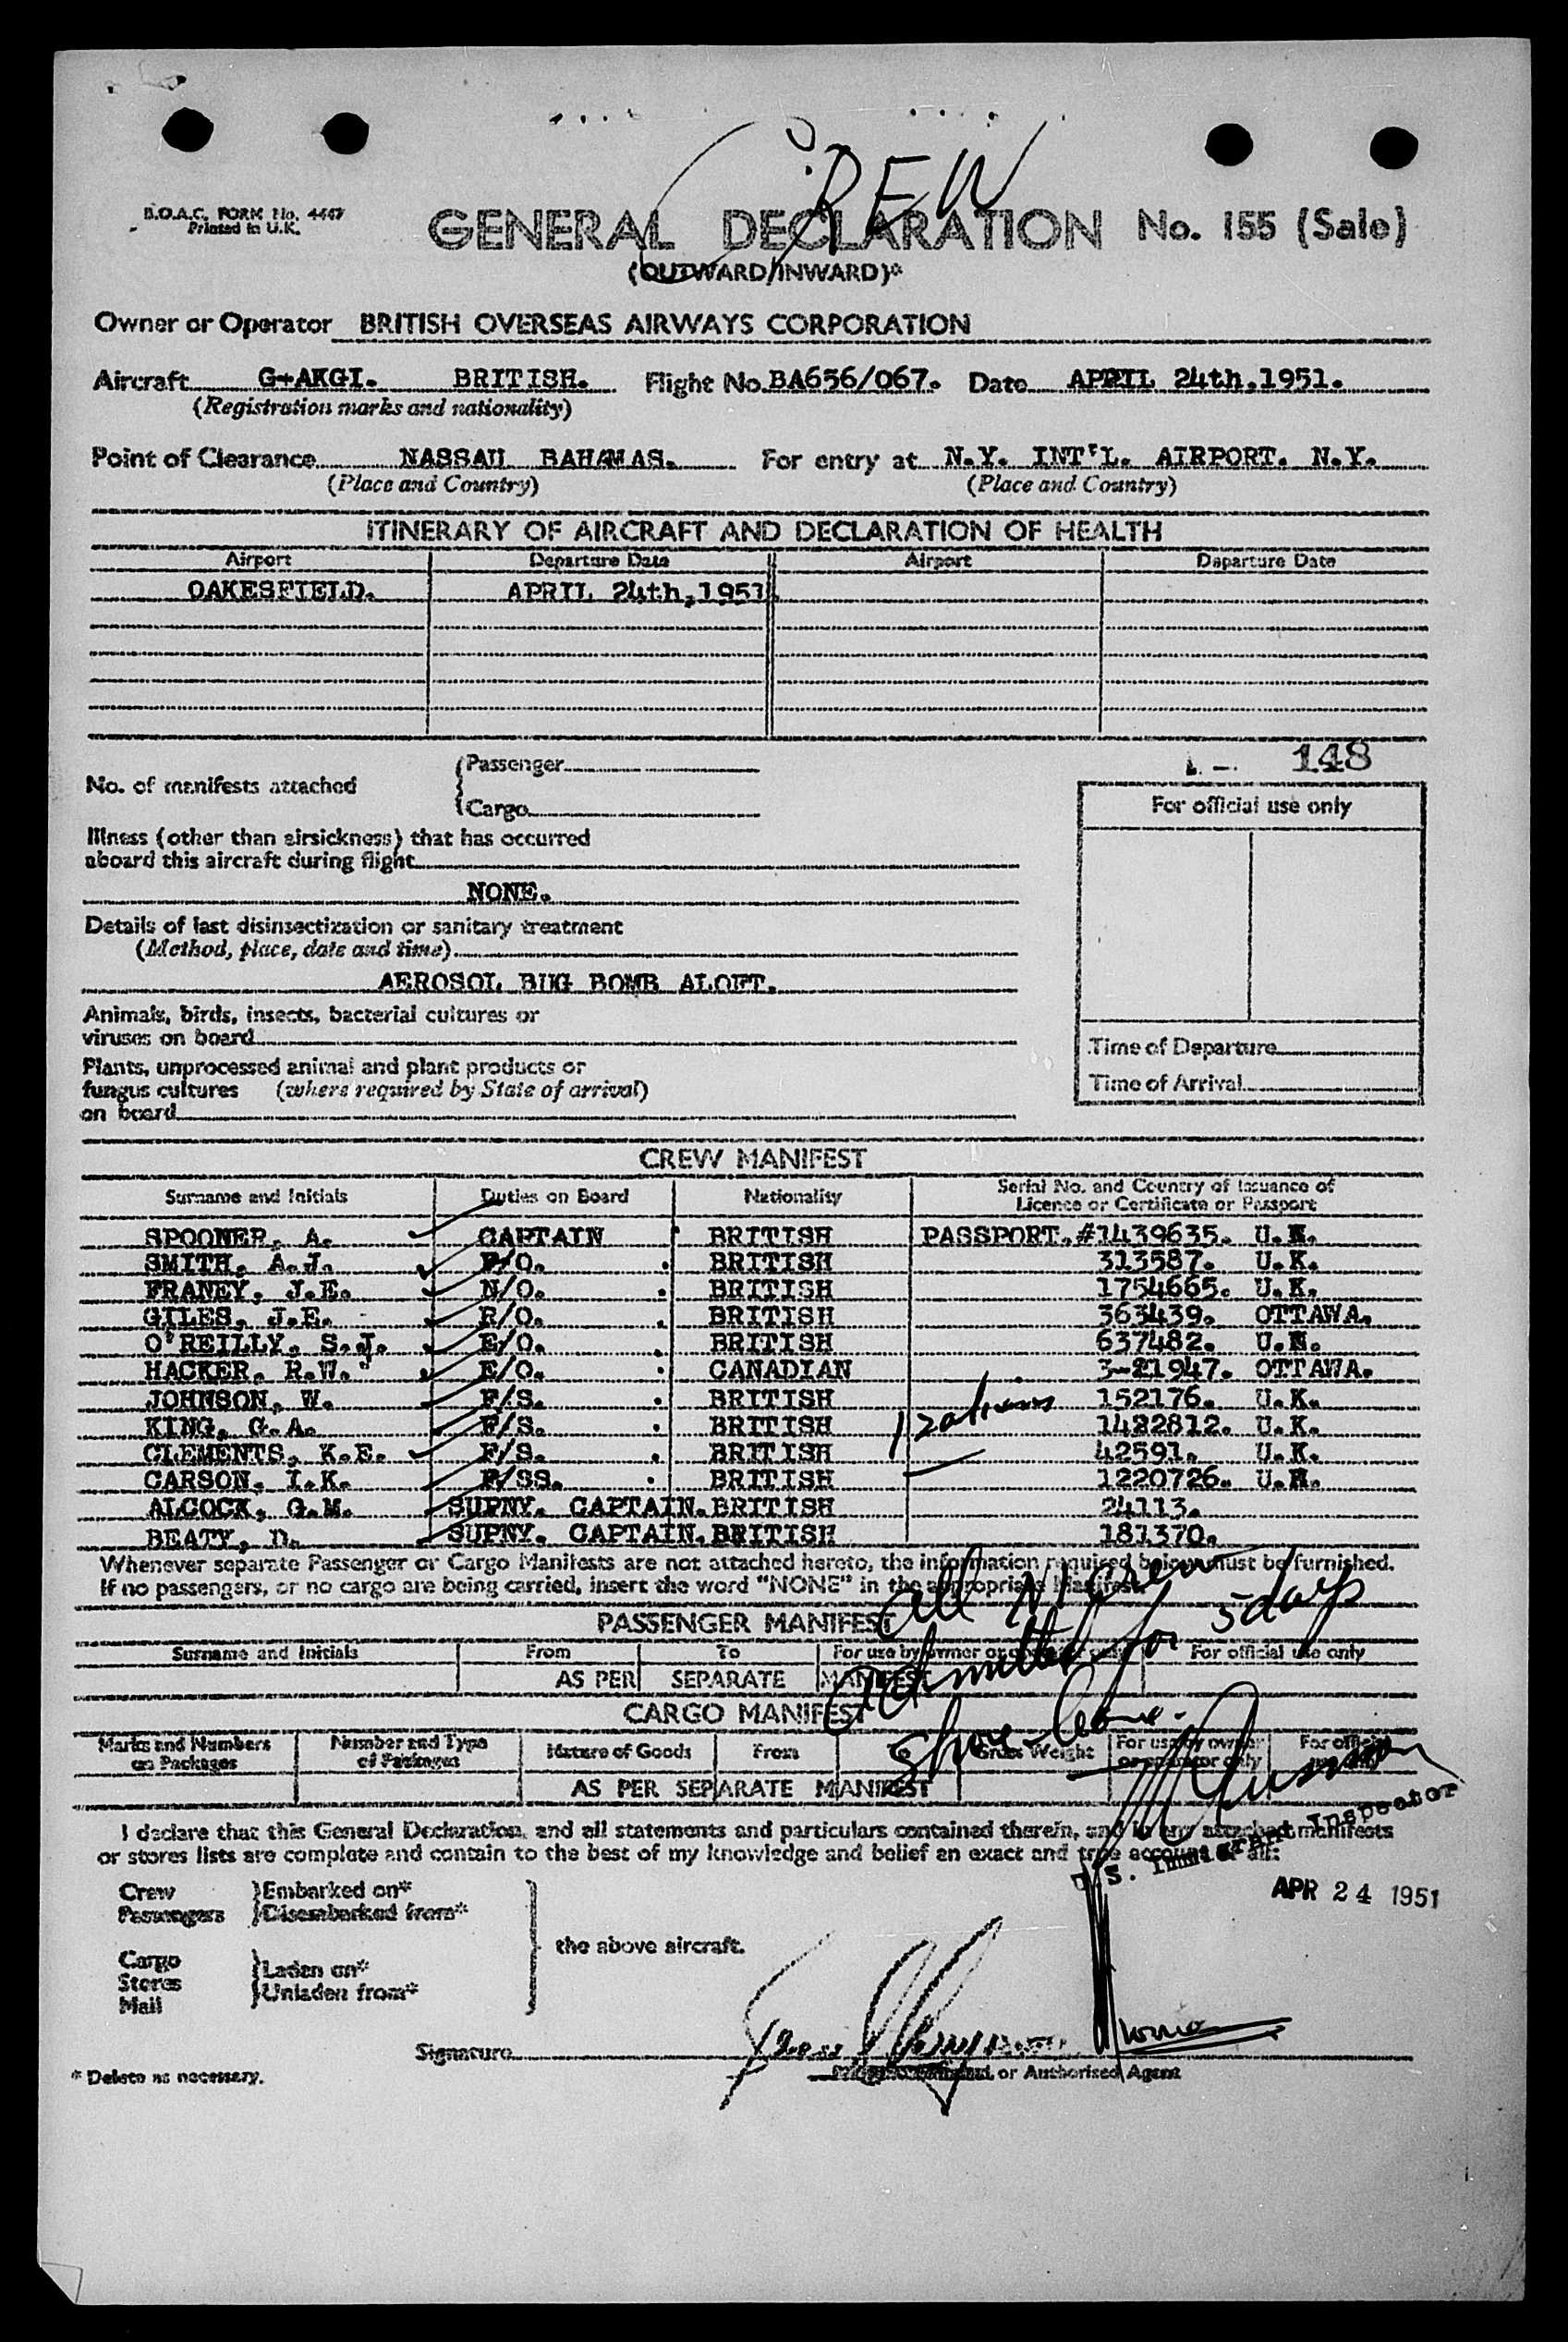 CREW
B.O.A.C. FORM No. 4447
Printed in U.K.
GENERAL DECLARATION No. 155 (Sale)
(OUTWARD/INWARD)*
Owner or Operator BRITISH OVERSEAS AIRWAYS CORPORATION
Aircraft G-AKGI. BRITISH. Flight No. BA656/067. Date APRIL 24th.1951.
(Registration marks and nationality)
Point of Clearance NASSAU BAHAMAS. For entry at N.Y. INT'L. AIRPORT. N.Y.
(Place and Country) (Place and Country)
ITINERARY OF AIRCRAFT AND DECLARATION OF HEALTH
Airport Departure Date Airport Departure Date
OAKESFIELD. APRIL 24th,1951.
148
No. of manifests attached {Passenger
{Cargo
For official use only
Illness (other than airsickness) that has occurred
aboard this aircraft during flight
NONE.
Details of last disinsectization or sanitary treatment
(Method, place, date and time)
AEROSOL BUG BOMB ALOFT.
Animals, birds, insects, bacterial cultures or
viruses on board
Plants, unprocessed animal and plant products or
fungus cultures (where required by State of arrival)
on board
Time of Departure
Time of Arrival
CREW MANIFEST
Surname and Initials Duties on Board Nationality Serial No. and Country of Issuance of
Licence or Certificate or Passport
SPOONER, A. CAPTAIN BRITISH PASSPORT.#1439635. U.K.
SMITH, A.J. F/O. BRITISH 313587. U.K.
FRANEY, J.E. N/O. BRITISH 1754665. U.K.
GILES, J.E. R/O. BRITISH 363439. OTTAWA.
O'REILLY, S.J. E/O. BRITISH 637482. U.K.
HACKER, R.W. E/O. CANADIAN 3-21947. OTTAWA.
JOHNSON, W. F/S. BRITISH 152176. U.K.
KING, G.A. F/S. BRITISH 1482812. U.K.
CLEMENTS, K.E. F/S. BRITISH 42591. U.K.
CARSON, I.K. F/SS. BRITISH 1220726. U.K.
ALCOCK, G.M. SUPNY. CAPTAIN. BRITISH 24113.
BEATY, D. SUPNY. CAPTAIN. BRITISH 181370.
Whenever separate Passenger or Cargo Manifests are not attached hereto, the information required below must be furnished.
If no passengers, or no cargo are being carried, insert the word "NONE" in the appropriate Manifest.
All crew
Admitted for 5 days
Shore leave.
PASSENGER MANIFEST
Surname and Initials From To For use by owner or operator only For official use only
AS PER SEPARATE MANIFEST
CARGO MANIFEST
Marks and Numbers on Packages Number and Type of Packages Nature of Goods From To Gross Weight For use by owner or operator only For official use only
AS PER SEPARATE MANIFEST
U.S. Immigrant Inspector
I declare that this General Declaration, and all statements and particulars contained therein, and in any attached manifests
or stores lists are complete and contain to the best of my knowledge and belief an exact and true account of all:
APR 24 1951
Crew }Embarked on*
Passengers }Disembarked from*
the above aircraft.
Cargo
Stores }Laden on*
Mail }Unladen from*
Signature
or Authorised Agent
* Delete as necessary.